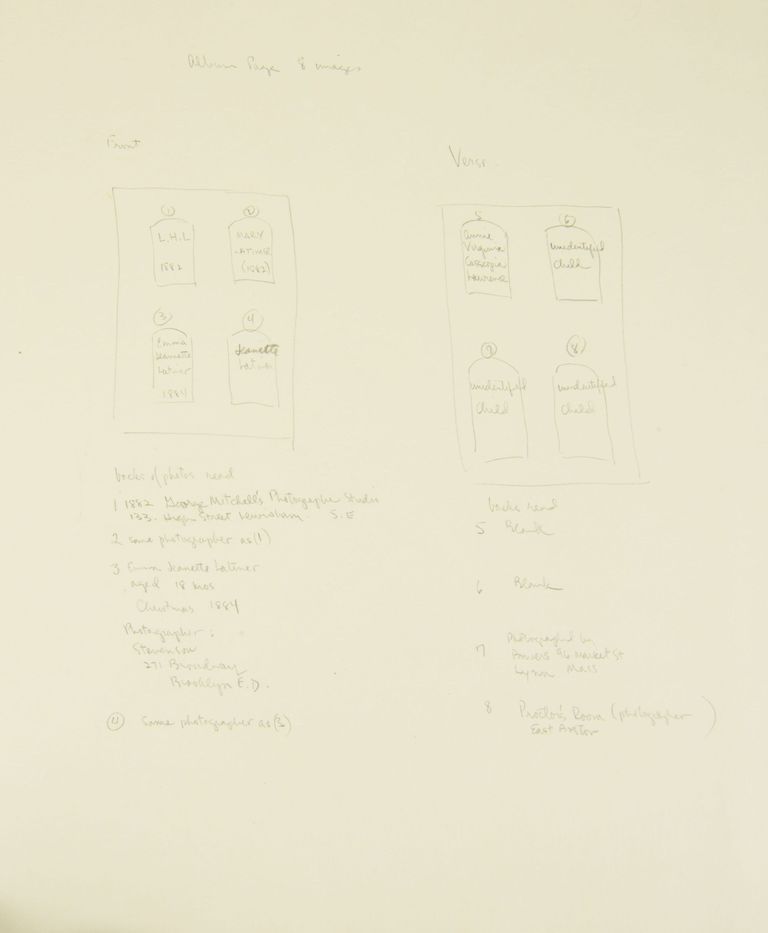 Album Page 8 images
Front
1
L.H.L
1882
2
MARY
LATIMER
(1882)
3
Emma
Jeanette
Latimer
1884
4
Jeanette
Latimer
backs of photos read
1 1882 George Mitchell's Photographic Studio
133. High Street Lewisham. S.E
2 same photographer as (1)
3 Emma Jeanette Latimer
aged 18 mos
Christmas 1884
Photographer:
Stevenson
271 Broadway
Brooklyn E.D.
4 Same photographer as (3)
Verso.
5
Annie
Virginia
Lawrence
6
unidentified
child
7
unidentified
child
8
unidentified
child
backs read
5 Blank
6 Blank
7 Photographed by
Bowers 96 Market St
Lynn Mass
8 Proctor's Room (photographer)
East